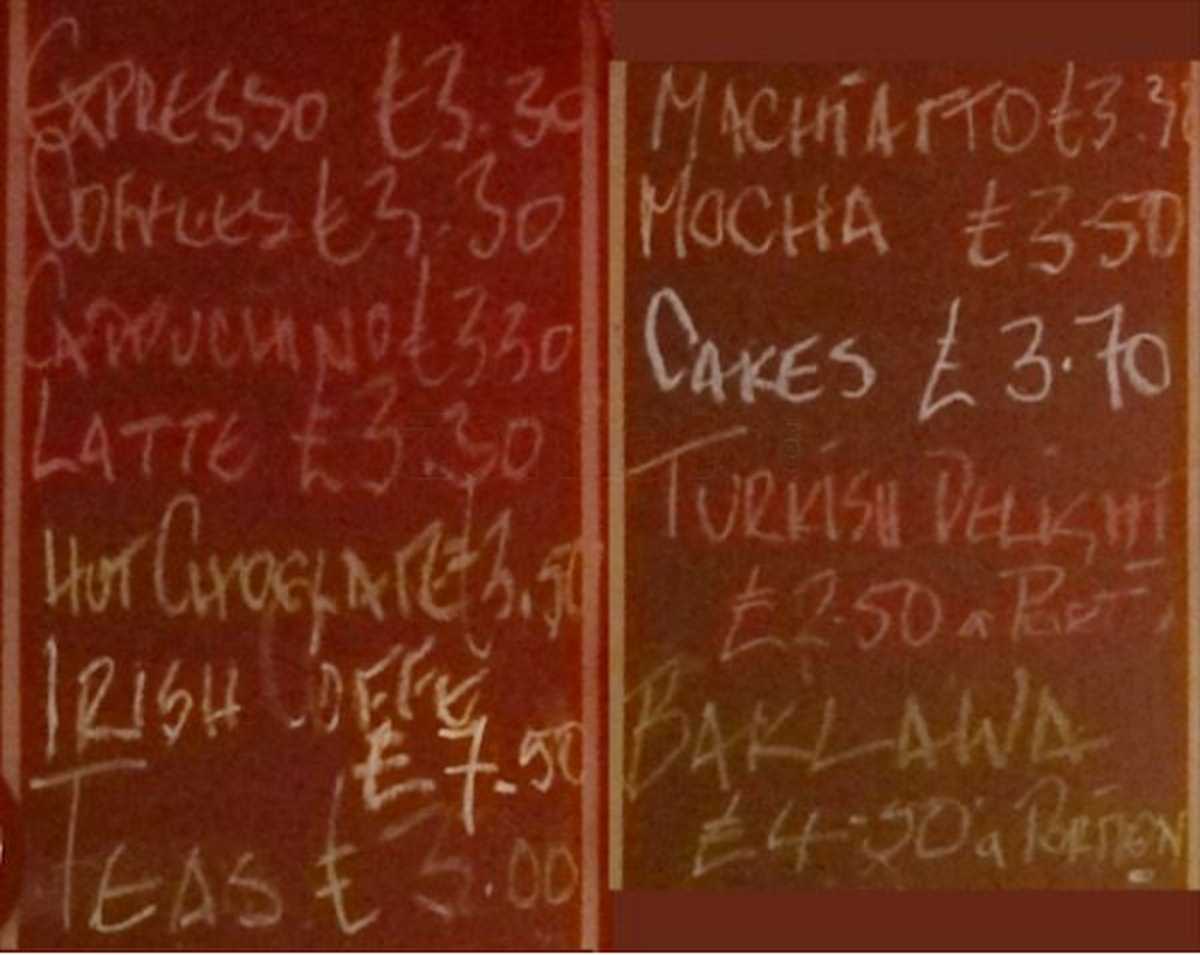 EXPRESSO £3.30
COFFEES £3.30
CAPPUCHINO £330
LATTE £3.30
HOT CHOCLATE £3.50
IRISH COFFE
£7.50
TEAS £ 3.00
MACHIATTO £3.30
MOCHA £350
CAKES £3.70
TURKISH DELIGHT
£2.50 a
BAKLAWA
£4-50 a PORTION